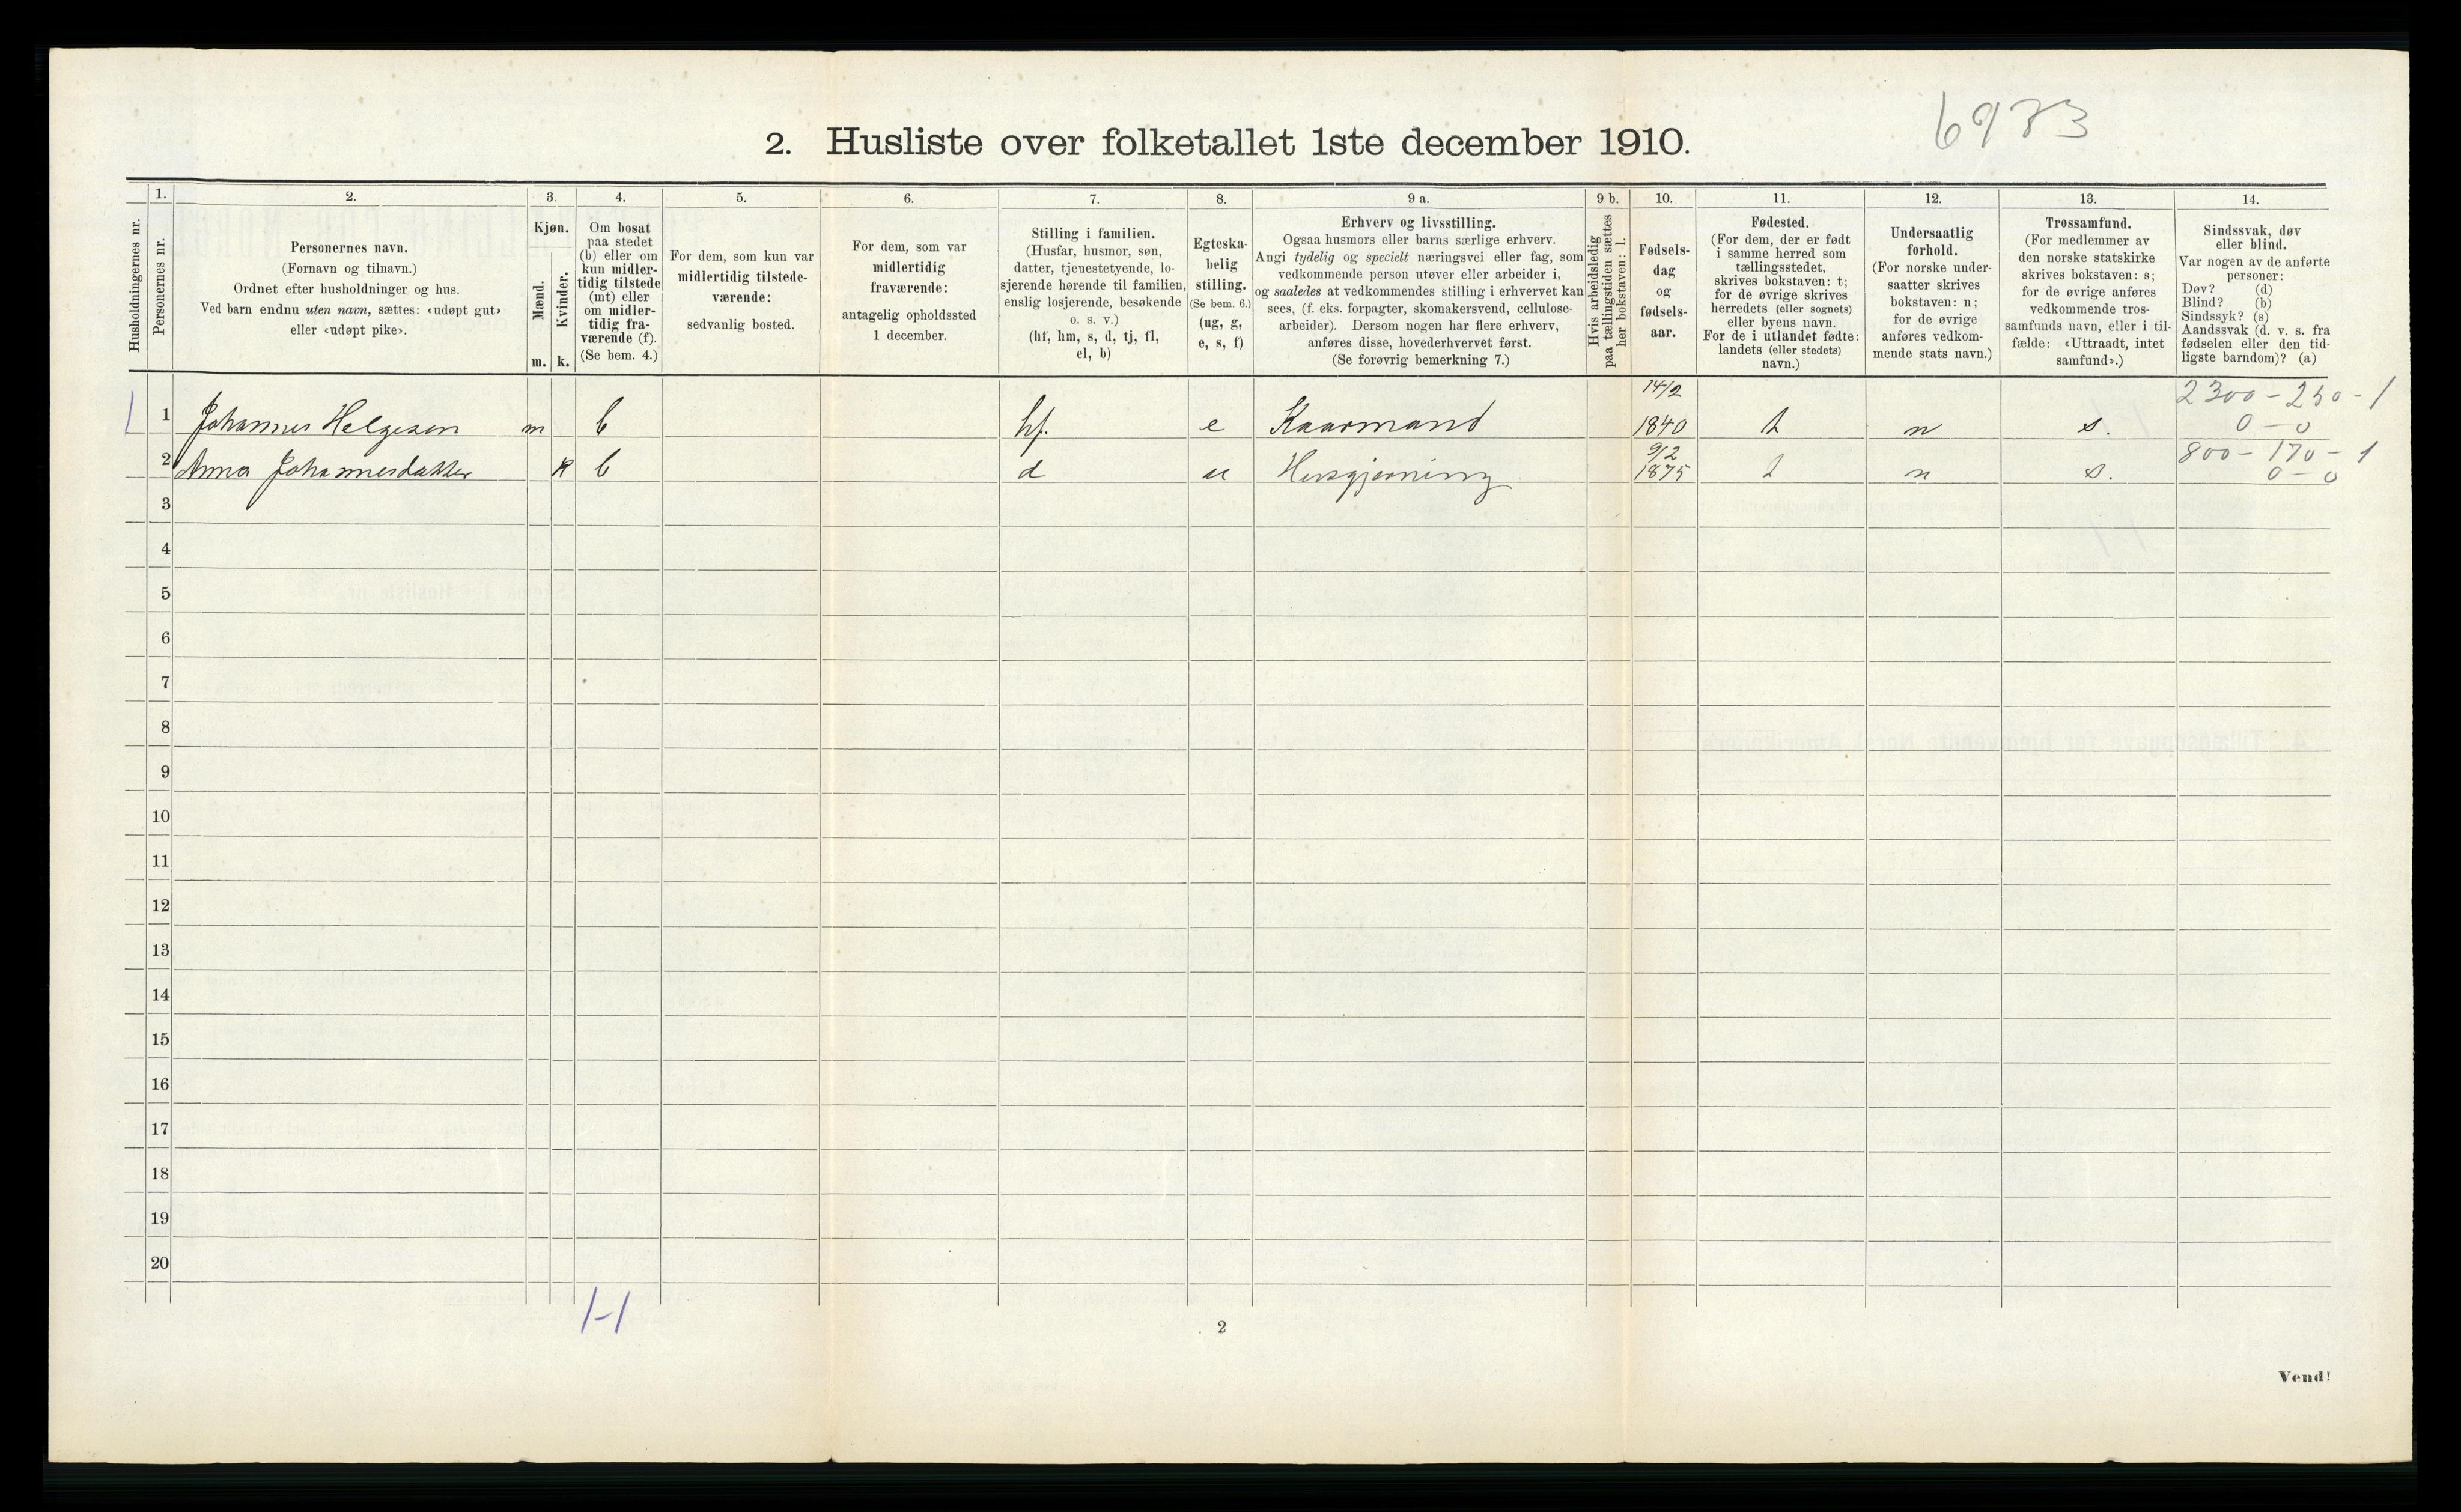 6983
2. Husliste over folketallet 1ste december 1910.
Husholdningernes nr.
1.
Personernes nr.
2.
Personernes navn.
(Fornavn og tilnavn.)
Ordnet efter husholdninger og hus.
Ved barn endnu uten navn, sættes: «udøpt gut»
eller «udøpt pike».
3.
Kjøn.
Mænd.
m.
Kvinder.
k.
4.
Om bosat
paa stedet
(b) eller om
kun midler-
tidig tilstede
(mt) eller
om midler-
tidig fra-
værende (f).
(Se bem. 4.)
5.
For dem, som kun var
midlertidig tilstede-
værende:
sedvanlig bosted.
6.
For dem, som var
midlertidig
fraværende:
antagelig opholdssted
1 december.
7.
Stilling i familien.
(Husfar, husmor, søn,
datter, tjenestetyende, lo-
sjerende hørende til familien,
enslig losjerende, besøkende
o. s. v.)
(hf, hm, s, d, tj, fl,
el, b)
8.
Egteska-
belig
stilling.
(Se bem. 6.)
(ug, g,
e, s, f)
9 a.
Erhverv og livsstilling.
Ogsaa husmors eller barns særlige erhverv.
Angi tydelig og specielt næringsvei eller fag, som
vedkommende person utøver eller arbeider i,
og saaledes at vedkommendes stilling i erhvervet kan
sees, (f. eks. forpagter, skomakersvend, cellulose-
arbeider). Dersom nogen har flere erhverv,
anføres disse, hovederhvervet først.
(Se forøvrig bemerkning 7.)
9 b.
Hvis arbeidsledig
paa tællingstiden sættes
her bokstaven: l.
10.
Fødsels-
dag
og
fødsels-
aar.
11.
Fødested.
(For dem, der er født
i samme herred som
tællingsstedet,
skrives bokstaven: t;
for de øvrige skrives
herredets (eller sognets)
eller byens navn.
For de i utlandet fødte:
landets (eller stedets)
navn.)
12.
Undersaatlig
forhold.
(For norske under-
saatter skrives
bokstaven: n;
for de øvrige
anføres vedkom-
mende stats navn.)
13.
Trossamfund.
(For medlemmer av
den norske statskirke
skrives bokstaven: s;
for de øvrige anføres
vedkommende tros-
samfunds navn, eller i til-
fælde: «Uttraadt, intet
samfund».)
14.
Sindssvak, døv
eller blind.
Var nogen av de anførte
personer:
Døv? (d)
Blind? (b)
Sindssyk? (s)
Aandssvak (d. v. s. fra
fødselen eller den tid-
ligste barndom)? (a)
14/2 2300 - 250 - 1
1 1 Johannes Helgesen m b hf. e Kaarmand 1840 t n s. 0 - 0
9/2 800 - 170 - 1
2 Anna Johannesdatter k b d u Husgjerning 1875 t n s. 0 - 0
3
4
5
6
7
8
9
10
11
12
13
14
15
16
17
18
19
20
1-1
2
Vend!